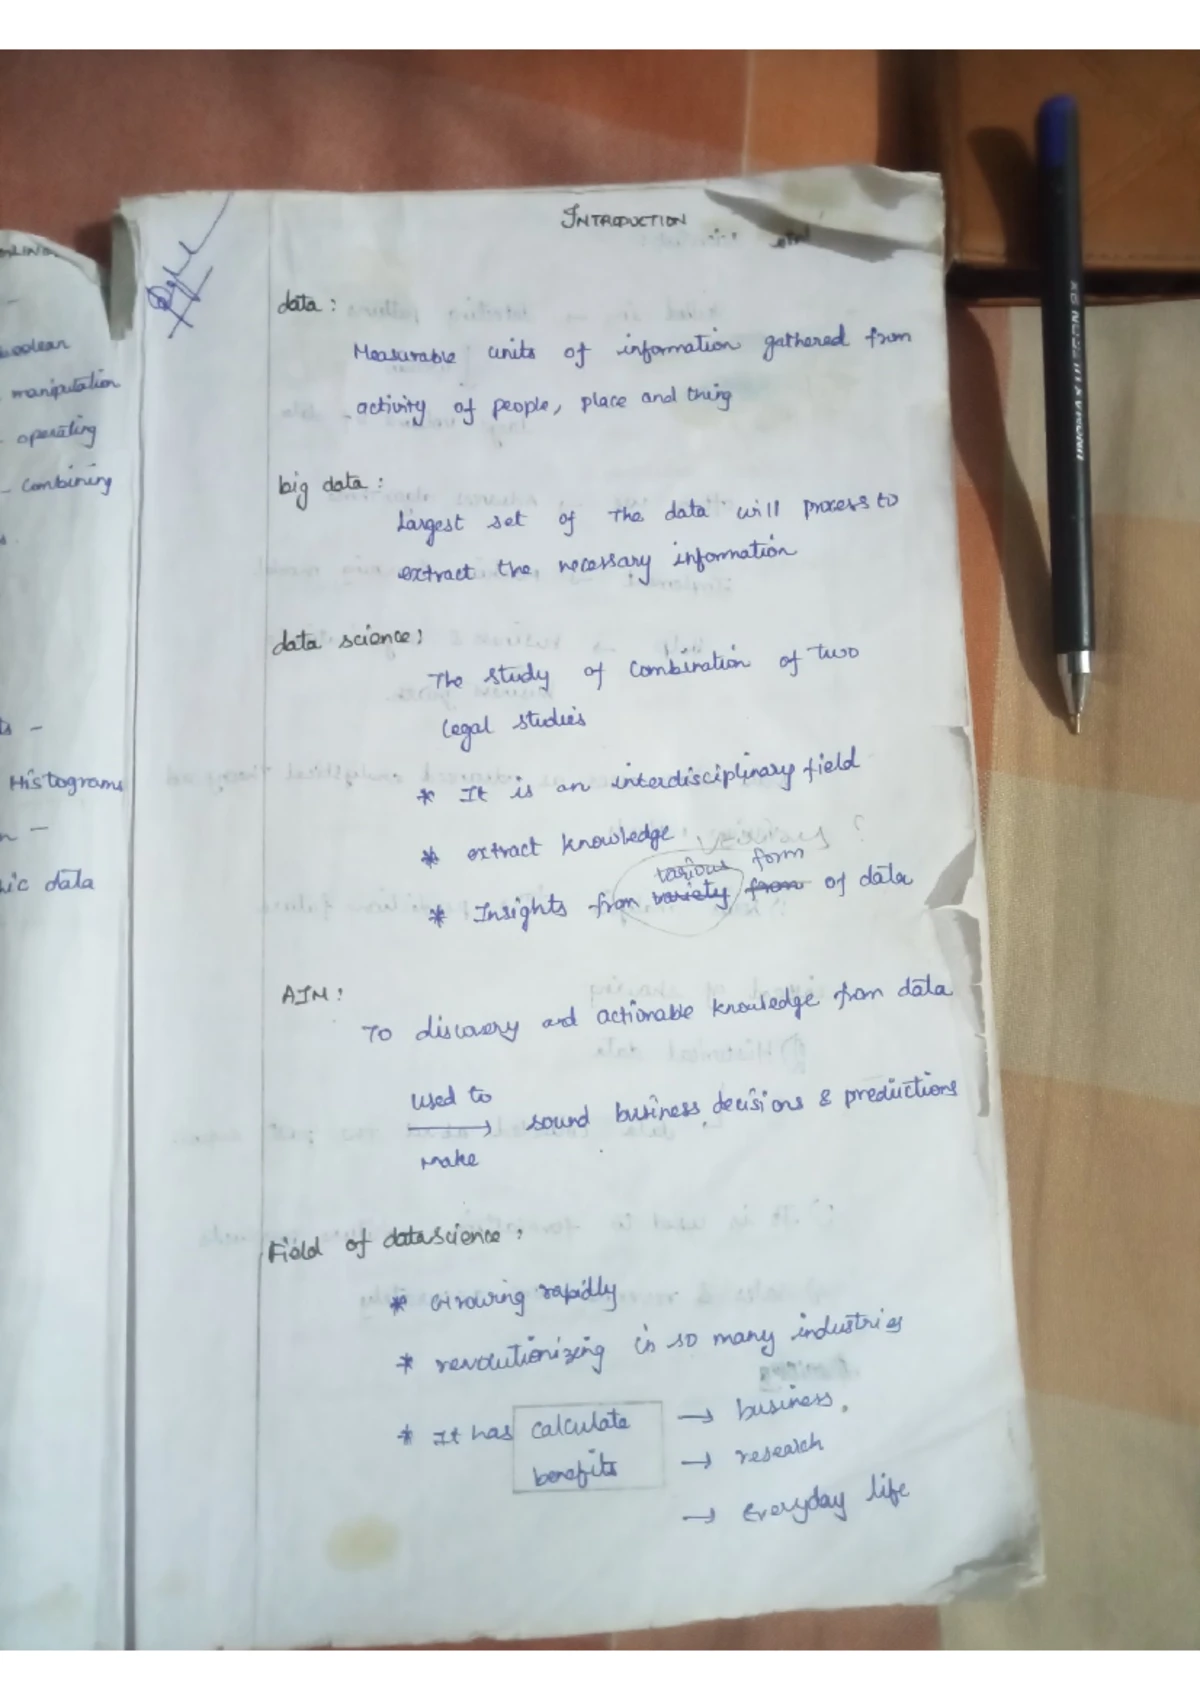 INTRODUCTION
data :
Measurable units of information gathered from
activity of people, place and thing
big data :
Largest set of The data will process to
extract the necessary information
data science :
The study of combination of two
legal studies
* It is an interdisciplinary field
* extract knowledge
various form
* Insights from variety from of data
AIM :
To discovery and actionable knowledge from data
used to
sound business decisions & predictions
Make
Field of datascience :
* Growing rapidly
* revolutionizing in so many industries
* It has calculate → business
benefits → research
→ Everyday life
boolean
manipulation
- operating
- Combining
Histograms
data